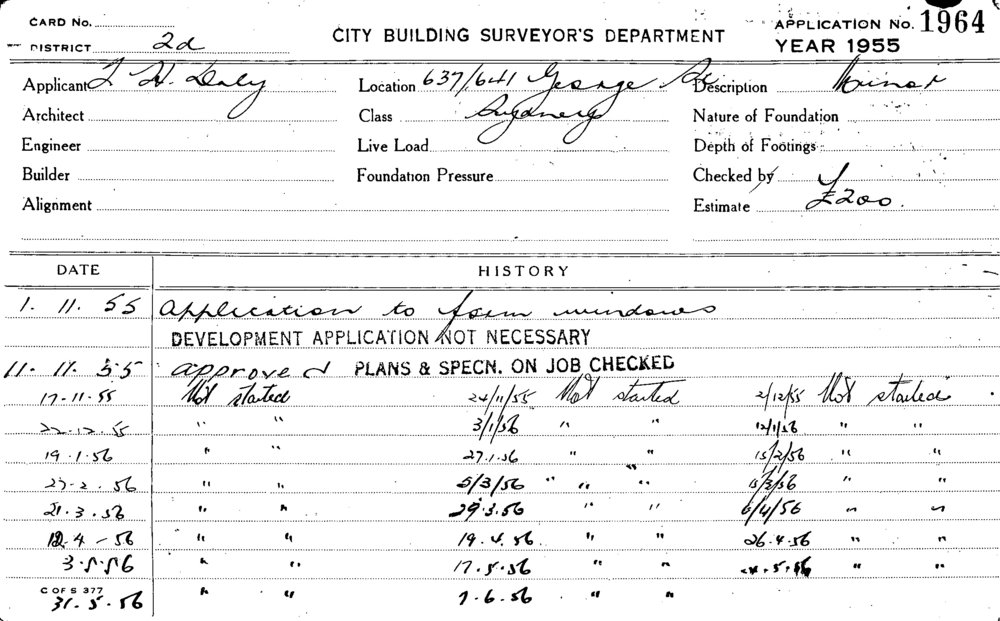 CARD No.
DISTRICT 2d
CITY BUILDING SURVEYOR'S DEPARTMENT
APPLICATION No. 1964
YEAR 1955
Applicant J H. Daly Location 637/641 George St Description Minor
Architect Class Sydney Nature of Foundation
Engineer Live Load Depth of Footings
Builder Foundation Pressure Checked by
Alignment Estimate £200.
DATE HISTORY
1. 11. 55 Application to form windows
DEVELOPMENT APPLICATION NOT NECESSARY
11. 11. 55 approved PLANS & SPECN. ON JOB CHECKED
17-11-55 Not started 24/11/55 Not started 2/12/55 Not started
22-12-55 " " 3/1/56 " " 12/1/56 " "
19.1.56 " " 27.1.56 " " 15/2/56 " "
" " 5/3/56 " " " "
21.3.56 " " 29.3.56 " " 6/4/56 " "
12.4-56 " " 19.4.56 " " 26.4.56 " "
3.5.56 " " 17.5.56 " " " "
C OF S 377
31.5.56 " " 7.6.56 " "